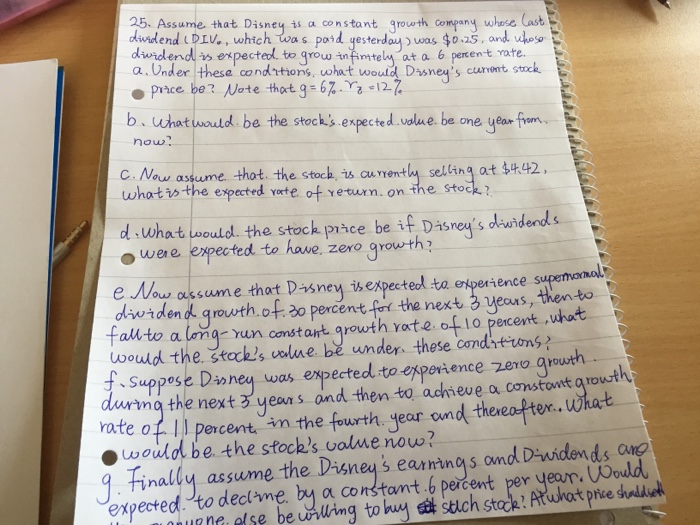 25. Assume that Disney is a constant growth company whose last
dividend (DIV₀, which was paid yesterday) was $0.25, and whose
dividend is expected to grow infinitely at a 6 percent rate.
a. Under these conditions, what would Disney's current stock
price be? Note that g = 6%. r₃ = 12%
b. What would be the stock's expected value be one year from
now?
c. Now assume that the stock is currently selling at $4.42,
what is the expected rate of return on the stock?
d. What would the stock price be if Disney's dividends
were expected to have zero growth?
e. Now assume that Disney is expected to experience supernormal
dividend growth of 30 percent for the next 3 years, then to
fall to a long-run constant growth rate of 10 percent, what
would the stock's value be under these conditions?
f. Suppose Disney was expected to experience zero growth
during the next 3 years and then to achieve a constant growth
rate of 11 percent in the fourth year and thereafter. What
would be the stock's value now?
g. Finally assume the Disney's earnings and Dividends are
expected to decline by a constant 6 percent per year. Would
else be willing to buy such stock? At what price should